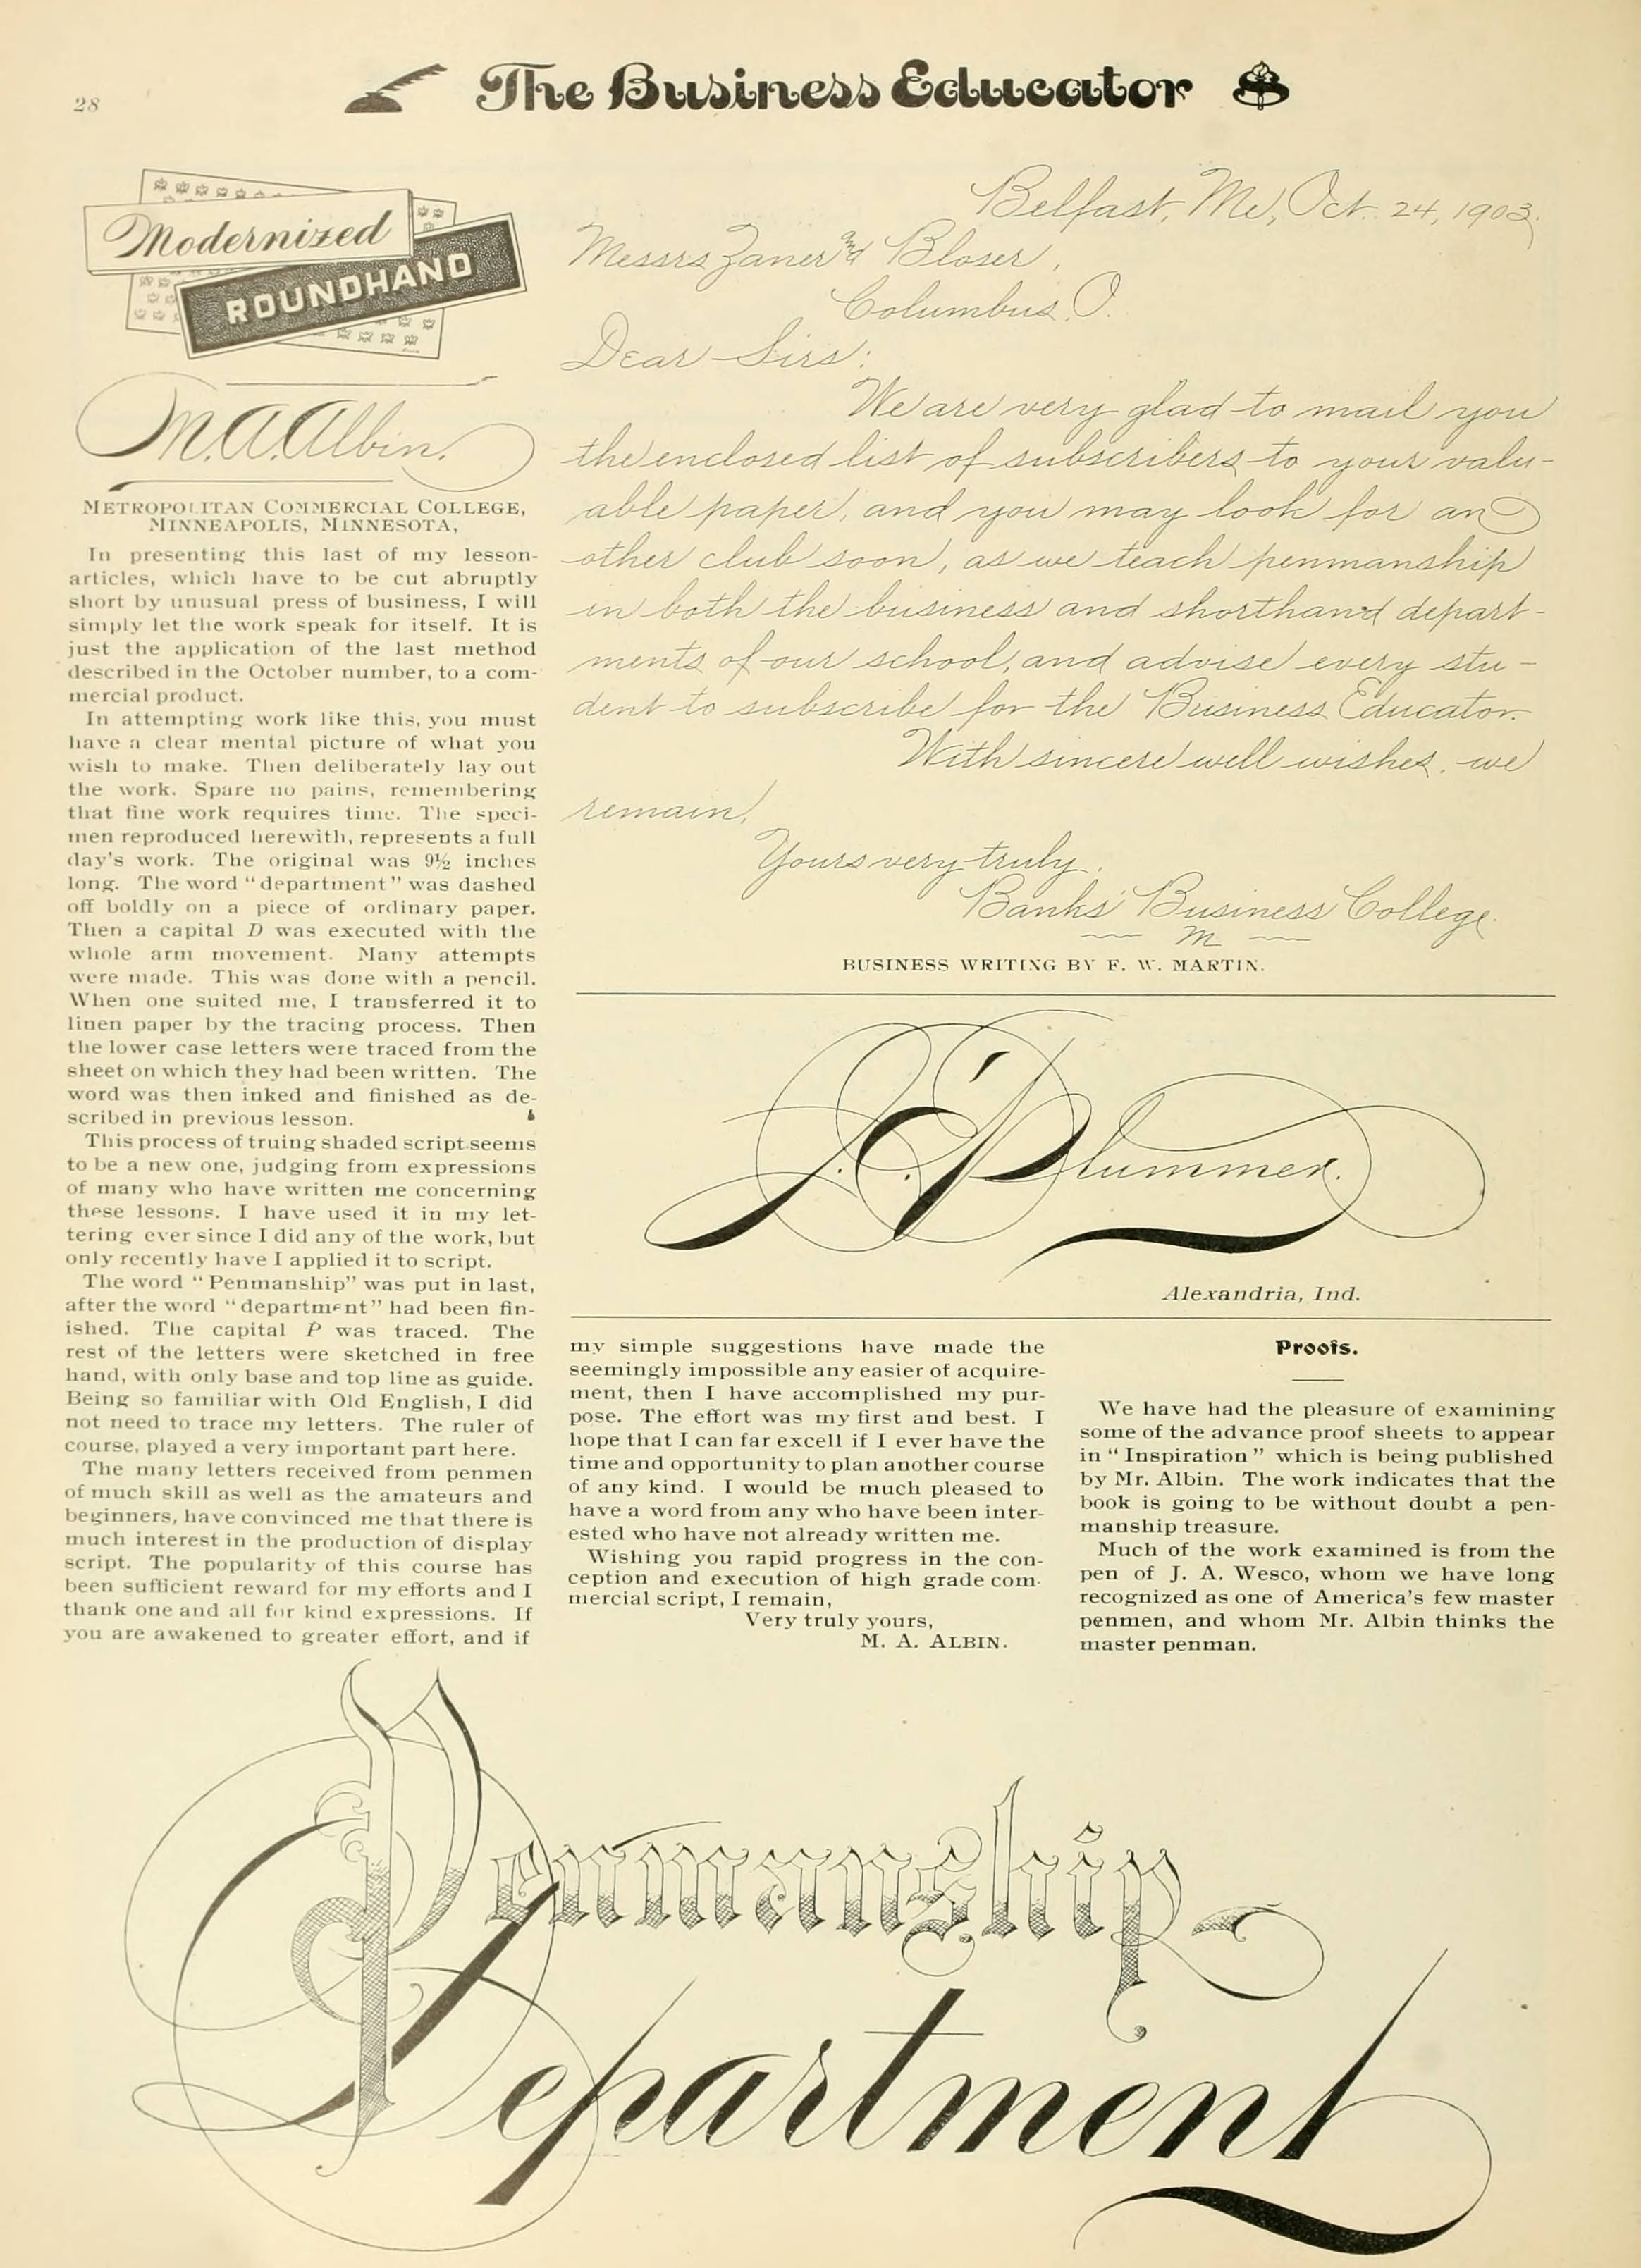 28
The Business Educator
Modernized
ROUNDHAND
M. A. Albin.
METROPOLITAN COMMERCIAL COLLEGE,
MINNEAPOLIS, MINNESOTA,
In presenting this last of my lesson-
articles, which have to be cut abruptly
short by unusual press of business, I will
simply let the work speak for itself. It is
just the application of the last method
described in the October number, to a com-
mercial product.
In attempting work like this, you must
have a clear mental picture of what you
wish to make. Then deliberately lay out
the work. Spare no pains, remembering
that fine work requires time. The speci-
men reproduced herewith, represents a full
day's work. The original was 9½ inches
long. The word "department" was dashed
off boldly on a piece of ordinary paper.
Then a capital D was executed with the
whole arm movement. Many attempts
were made. This was done with a pencil.
When one suited me, I transferred it to
linen paper by the tracing process. Then
the lower case letters were traced from the
sheet on which they had been written. The
word was then inked and finished as de-
scribed in previous lesson.
This process of truing shaded script seems
to be a new one, judging from expressions
of many who have written me concerning
these lessons. I have used it in my let-
tering ever since I did any of the work, but
only recently have I applied it to script.
The word "Penmanship" was put in last,
after the word "department" had been fin-
ished. The capital P was traced. The
rest of the letters were sketched in free
hand, with only base and top line as guide.
Being so familiar with Old English, I did
not need to trace my letters. The ruler of
course, played a very important part here.
The many letters received from penmen
of much skill as well as the amateurs and
beginners, have convinced me that there is
much interest in the production of display
script. The popularity of this course has
been sufficient reward for my efforts and I
thank one and all for kind expressions. If
you are awakened to greater effort, and if
Belfast, Me, Oct. 24, 1903.
Messrs Zaner and Bloser,
Columbus, O.
Dear Sirs:
We are very glad to mail you
the enclosed list of subscribers to your valu-
able paper, and you may look for an
other club soon, as we teach penmanship
in both the business and shorthand depart-
ments of our school, and advise every stu-
dent to subscribe for the Business Educator.
With sincere well wishes, we
remain,
Yours very truly,
Banks' Business College.
M
BUSINESS WRITING BY F. W. MARTIN.
J. C. Plummer.
Alexandria, Ind.
my simple suggestions have made the
seemingly impossible any easier of acquire-
ment, then I have accomplished my pur-
pose. The effort was my first and best. I
hope that I can far excell if I ever have the
time and opportunity to plan another course
of any kind. I would be much pleased to
have a word from any who have been inter-
ested who have not already written me.
Wishing you rapid progress in the con-
ception and execution of high grade com-
mercial script, I remain,
Very truly yours,
M. A. ALBIN.
Proofs.
We have had the pleasure of examining
some of the advance proof sheets to appear
in "Inspiration" which is being published
by Mr. Albin. The work indicates that the
book is going to be without doubt a pen-
manship treasure.
Much of the work examined is from the
pen of J. A. Wesco, whom we have long
recognized as one of America's few master
penmen, and whom Mr. Albin thinks the
master penman.
Penmanship
Department